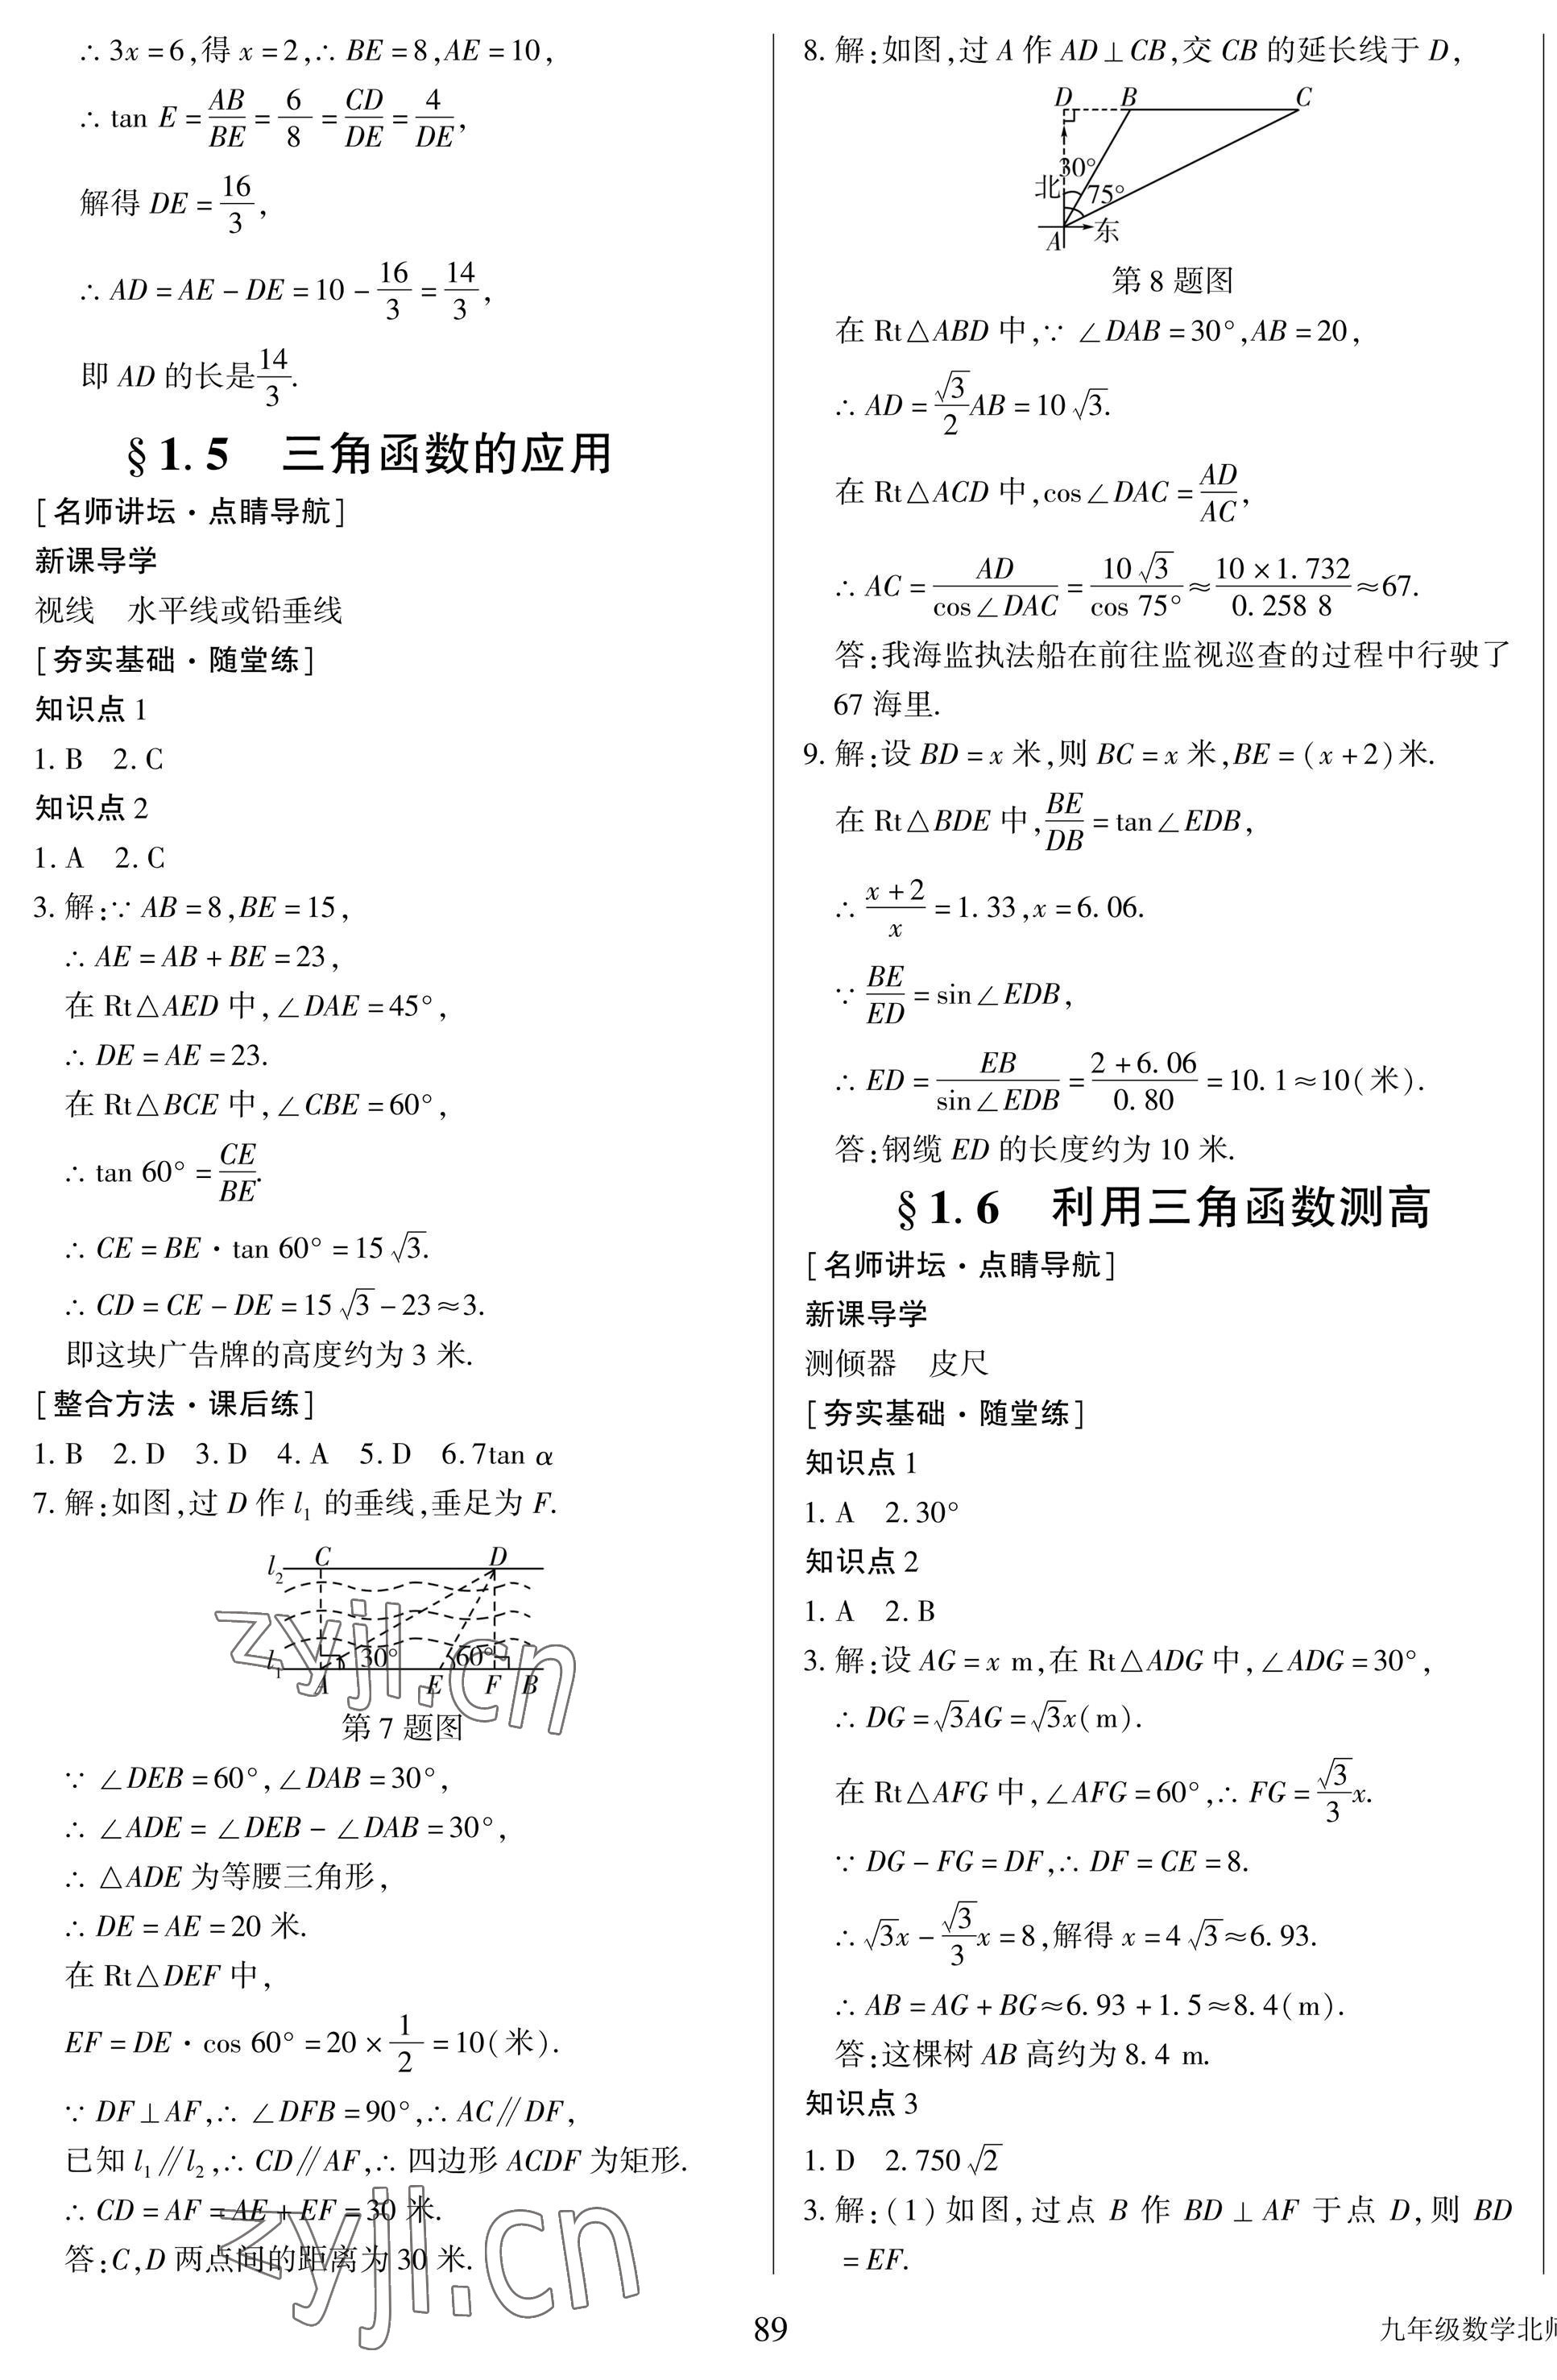 ∴ 3x=6,得 x=2,∴ BE=8,AE=10,
∴ tan E=AB/BE=6/8=CD/DE=4/DE,
解得 DE=16/3,
∴ AD=AE-DE=10-16/3=14/3,
即 AD 的长是14/3.
§1.5 三角函数的应用
[名师讲坛·点睛导航]
新课导学
视线 水平线或铅垂线
[夯实基础·随堂练]
知识点1
1. B 2. C
知识点2
1. A 2. C
3. 解:∵ AB=8,BE=15,
∴ AE=AB+BE=23,
在 Rt△AED 中,∠DAE=45°,
∴ DE=AE=23.
在 Rt△BCE 中,∠CBE=60°,
∴ tan 60°=CE/BE.
∴ CE=BE·tan 60°=15√3.
∴ CD=CE-DE=15√3-23≈3.
即这块广告牌的高度约为3 米.
[整合方法·课后练]
1. B 2. D 3. D 4. A 5. D 6.7tan α
7. 解:如图,过 D 作 l₁ 的垂线,垂足为 F.
l₂ C D
l₁ 30° 60°
A E F B
第7题图
∵ ∠DEB=60°,∠DAB=30°,
∴ ∠ADE=∠DEB-∠DAB=30°,
∴ △ADE 为等腰三角形,
∴ DE=AE=20 米.
在 Rt△DEF 中,
EF=DE·cos 60°=20×1/2=10(米).
∵ DF⊥AF,∴ ∠DFB=90°,∴ AC∥DF,
已知 l₁∥l₂,∴ CD∥AF,∴ 四边形 ACDF 为矩形.
∴ CD=AF=AE+EF=30 米.
答:C,D 两点间的距离为30 米.
zyjl.cn
zyjl.cn
8. 解:如图,过 A 作 AD⊥CB,交 CB 的延长线于 D,
D B C
30°
北 75°
A 东
第8题图
在 Rt△ABD 中,∵ ∠DAB=30°,AB=20,
∴ AD=√3/2AB=10√3.
在 Rt△ACD 中,cos∠DAC=AD/AC,
∴ AC=AD/cos∠DAC=10√3/cos 75°≈10×1.732/0.258 8≈67.
答:我海监执法船在前往监视巡查的过程中行驶了
67 海里.
9. 解:设 BD=x 米,则 BC=x 米,BE=(x+2)米.
在 Rt△BDE 中,BE/DB=tan∠EDB,
∴ (x+2)/x=1.33,x=6.06.
∵ BE/ED=sin∠EDB,
∴ ED=EB/sin∠EDB=(2+6.06)/0.80=10.1≈10(米).
答:钢缆 ED 的长度约为10 米.
§1.6 利用三角函数测高
[名师讲坛·点睛导航]
新课导学
测倾器 皮尺
[夯实基础·随堂练]
知识点1
1. A 2.30°
知识点2
1. A 2. B
3. 解:设 AG=x m,在 Rt△ADG 中,∠ADG=30°,
∴ DG=√3AG=√3x(m).
在 Rt△AFG 中,∠AFG=60°,∴ FG=√3/3x.
∵ DG-FG=DF,∴ DF=CE=8.
∴ √3x-√3/3x=8,解得 x=4√3≈6.93.
∴ AB=AG+BG≈6.93+1.5≈8.4(m).
答:这棵树 AB 高约为8.4 m.
知识点3
1. D 2.750√2
3. 解:(1)如图,过点 B 作 BD⊥AF 于点 D,则 BD
=EF.
89
九年级数学北师